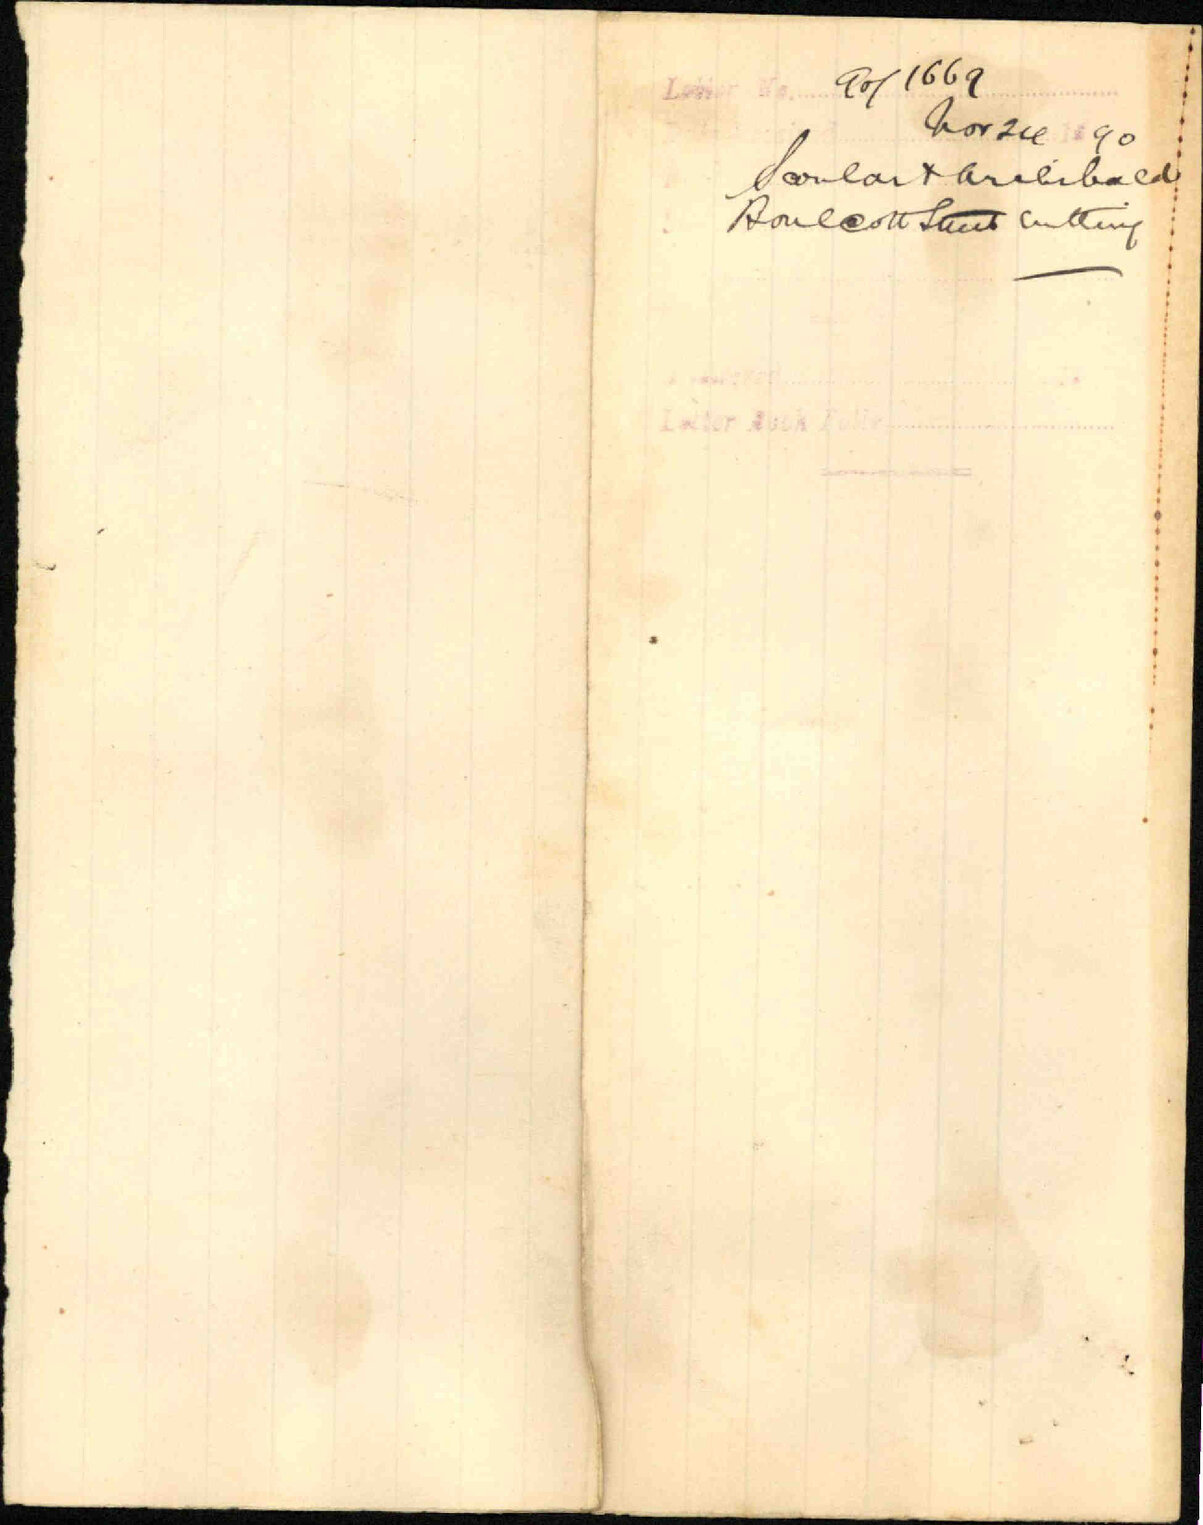 Letter No. 90/1669
Nov 24 1890
Scoular & Archibald
Boulcott Street Cutting
Letter Book Folio